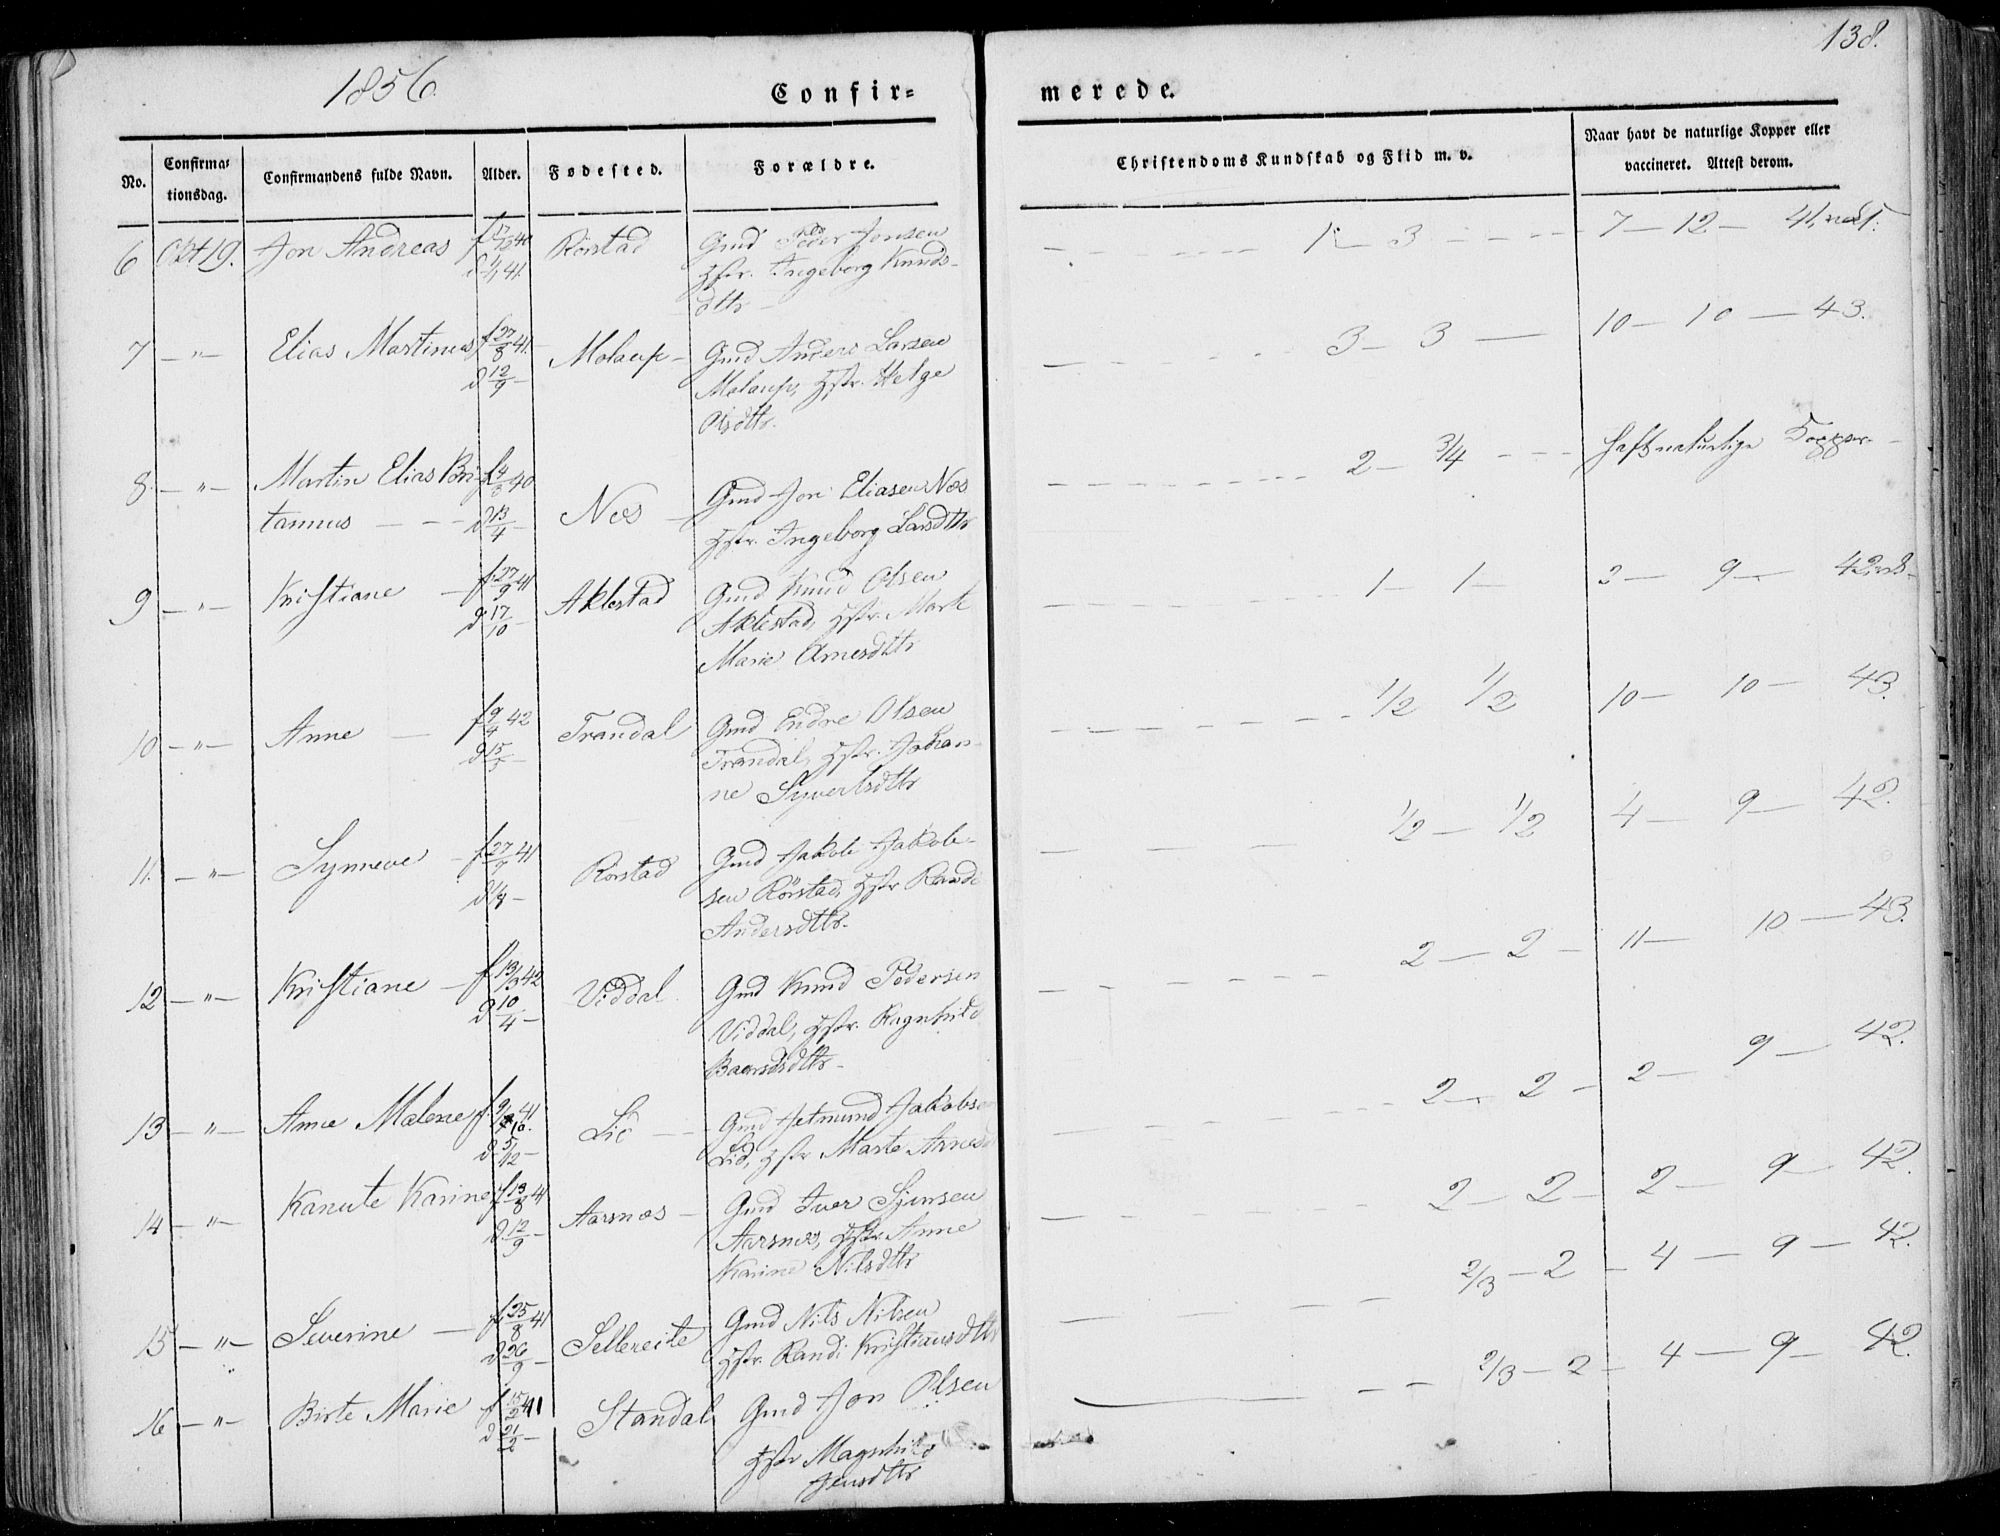 1856
138.
Confir=
merede.
No.
Confirma=
tionsdag.
Confirmandens fulde Navn.
Alder.
Fødested.
Forældre.
Christendoms Kundskab og Flid m. v.
Naar havt de naturlige Kopper eller
vaccineret. Attest derom.
6 Okt 19. Jon Andreas Rørstad Gmd Peder Jonsen 1 – 3 7 – 12 – 41
d 1/1 41. Hstr. Ingeborg Knuds-
dttr –
7 – " – Elias Martinus f 27/8 41. Molaup – Gmd Anders Larsen 3 – 3 – 10 – 10 – 43.
d 12/9 – Molaup, Hstr. Helge
Olsdttr.
8. – " – Martin Elias Bri- f 4/3 40 Næs – Gmd Jon Eliasen Næs 2 – 3/4 – haft naturlige Kopper –
tannus – – – d 13/4 – Hstr. Ingeborg Larsdttr
9 – " – Kristiane – f 27/9 41 Aklestad Gmd Knud Olsen 1 – 1 – 2 – 9 – 42
d 17/10 – Aklestad, Hstr. Mart
Marie Arnesdttr
10 – " – Anne – f 9/4 42 Trandal Gmd Endre Olsen 1/2 1/2 10 – 10 – 43.
d 15/5 – Trandal, Hstr. Johan-
ne Syvertsdttr
11. – " – Synneve – f 27/7 41 Rørstad Gmd Jakob Jakob- 1/2 – 1/2 4 – 9 – 42.
sen Rörstad, Hstr Randi
Andersdttr.
12 – " – Kristiane – f 13/3 42 Viddal Gmd Knud Pedersen 2 – 2 – 11 – 10 – 43.
d 10/4 – Viddal, Hstr. Ragnhild
Baardsdttr –
13 – " – Anne Malene f 9/10 41 Lid – Gmd Jetmund Jakobsen 2 – 2 – 2 – 9 – 42.
d 5/12 – Lid, Hstr Marte Arnesd
14 – " – Kanute Karine f 13/8 41 Aarsnæs – Gmd Iver Sjursen 2 – 2 – 2 – 9 – 42.
d. 12/9 – Aarsnæs, Hstr. Anne
Karine Nilsdttr
15 – " – Severine – f 25/8 41 Sellereite Gmd Nils Nilsen 2/3 – 2 – 4 – 9 – 42.
d 26/9 – Hstr. Randi Kristiansdttr
16 – " – Birte Marie f 15/2 41 Standal Gmd Jon Olsen 2/3 – 2 – 4 – 9 – 42.
d 21/2 – Hstr Magnhild
Jensdttr